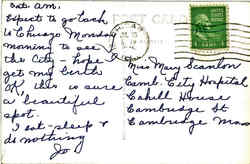 Sat. AM.
Expect to go back
to Chicago Monday
morning to see
the City - hope I
get my berth
OK, this is sure
a beautiful
spot.
I eat sleep &
do nothing
Jo
POST CARD
Miss Mary Scanlon
Camb. City Hospital
Cahill House
Cambridge St
Cambridge Mass